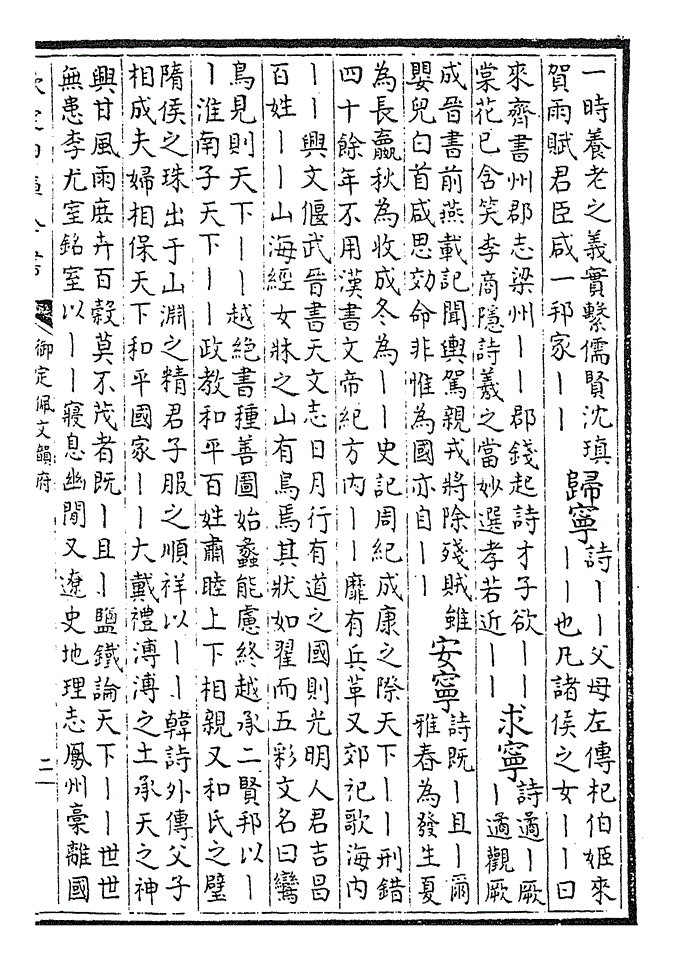 一時養老之義實繫儒賢沈瑱
賀雨賦君臣咸一邦家丨丨
歸寧
詩丨丨父母左傳杞伯姬來
丨丨也凡諸侯之女丨丨曰
來齊書州郡志梁州丨丨郡錢起詩才子欲丨丨
棠花已含笑李商隱詩羲之當妙選孝若近丨丨
求寧
詩遹丨厥
丨遹觀厥
成晉書前燕載記聞輿駕親戎將除殘賊雖
嬰兒白首咸思効命非惟為國亦自丨丨
安寧
詩既丨且丨爾
雅春為發生夏
為長嬴秋為收成冬為丨丨史記周紀成康之際天下丨丨刑錯
四十餘年不用漢書文帝紀方内丨丨靡有兵革又郊祀歌海内
丨丨興文偃武晉書天文志日月行有道之國則光明人君吉昌
百姓丨丨山海經女牀之山有鳥焉其狀如翟而五彩文名曰鸞
鳥見則天下丨丨越絕書種善圖始蠡能慮終越承二賢邦以丨
丨淮南子天下丨丨政教和平百姓肅睦上下相親又和氏之璧
隋侯之珠出于山淵之精君子服之順祥以丨丨韓詩外傳父子
相成夫婦相保天下和平國家丨丨大戴禮溥溥之土承天之神
興甘風雨庶卉百穀莫不茂者既丨且丨鹽鐵論天下丨丨世世
無患李尤室銘室以丨丨寢息幽閒又遼史地理志鳳州槀離國
欽定四庫全書
御定佩文韻府
二